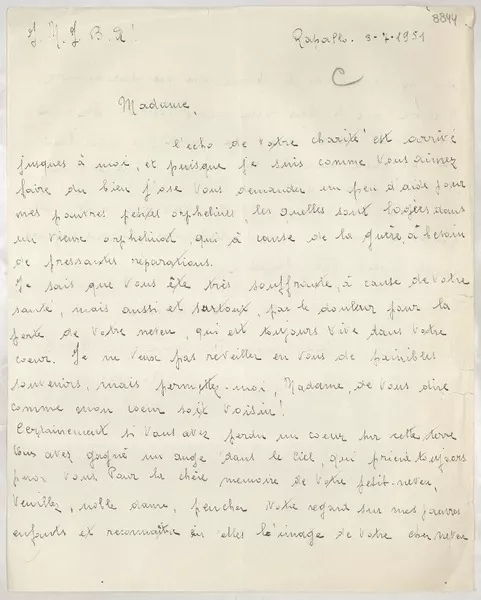 8844
J. M. J. B. A!
Rapallo. 3-7-1951
C
Madame,
l'echo de Votre charité est arrivé
jusques à moi, et puisque je suis comme Vous aimez
faire du bien j'ose Vous demander un peu d'aide pour
mes pauvres petites orphelines, les quelles sont logées dans
un vieux orphelinat, qui à cause de la guère, à besoin
de pressantes réparations.
Je sais que Vous ête très souffrante, à cause de Votre
santé, mais aussi et surtoux, par le douleur pour la
perte de Votre neveu, qui est toujours Vive dans Votre
coeur. Je ne Veux pas réveiller en Vous de painibles
souvenirs, mais permettez-moi, Madame, de Vous dire
comme mon coeur soit Voisin!
Certainement si Vous avez perdu un coeur sur cette terre
Vous avez gagné un ange dans le Ciel, qui prie toujours
pour Vous. Pour la chère memoire de Votre petit-neveu,
Veuillez, noble dame, pencher Votre regard sur mes pauvres
enfants et reconnaître en elles l'image de Votre cher neveu